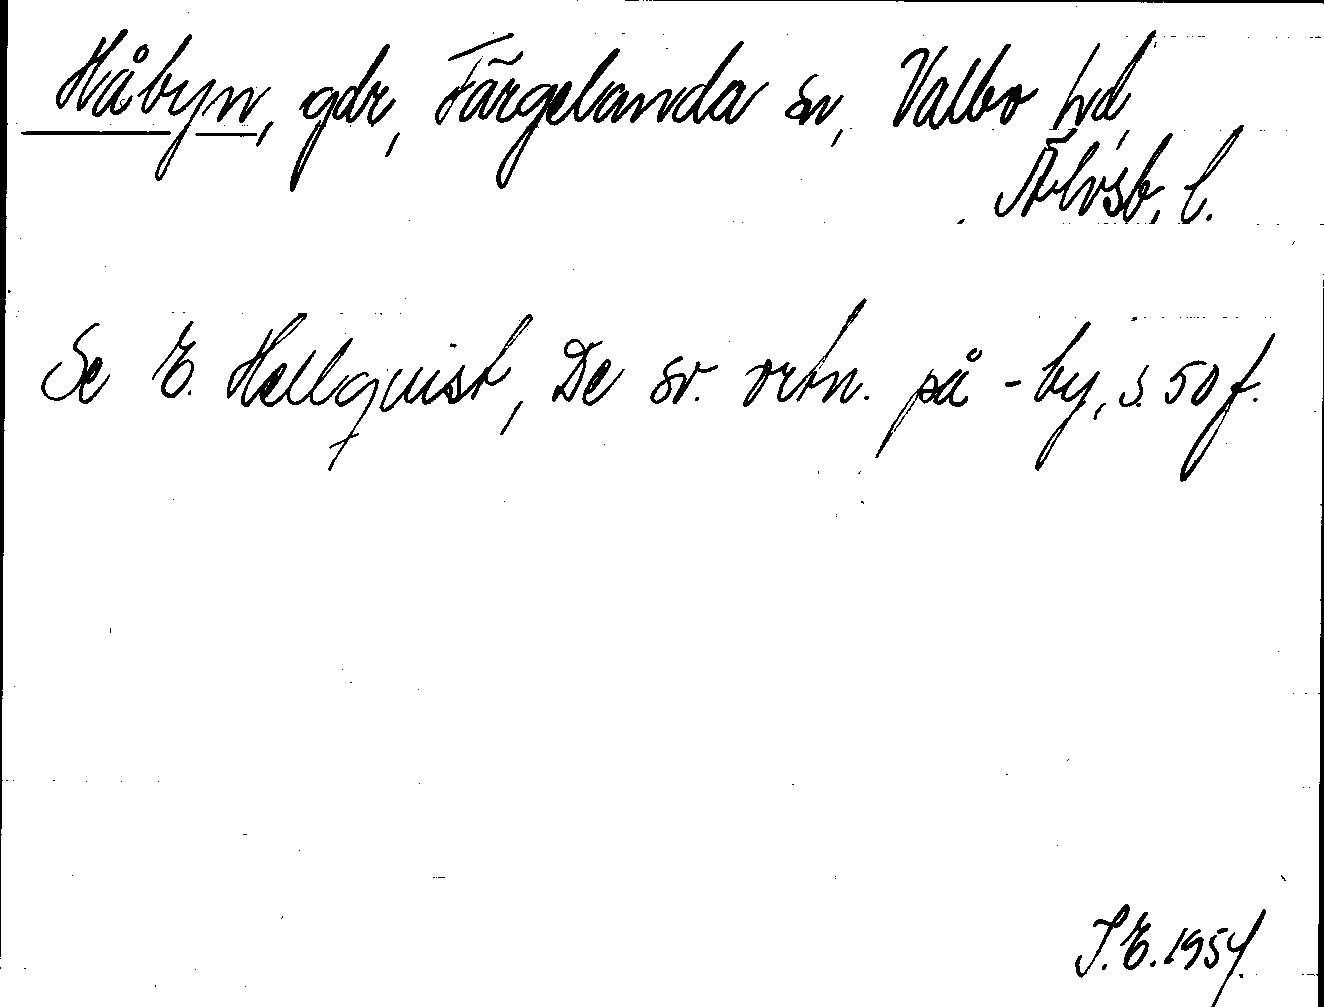 Håbyn, gdr, Färgelanda sn, Valbo hd,
Älvsb. l.
Se E. Hellquist, De sv. ortn. på -by, s. 50 f.
I. E. 1954.